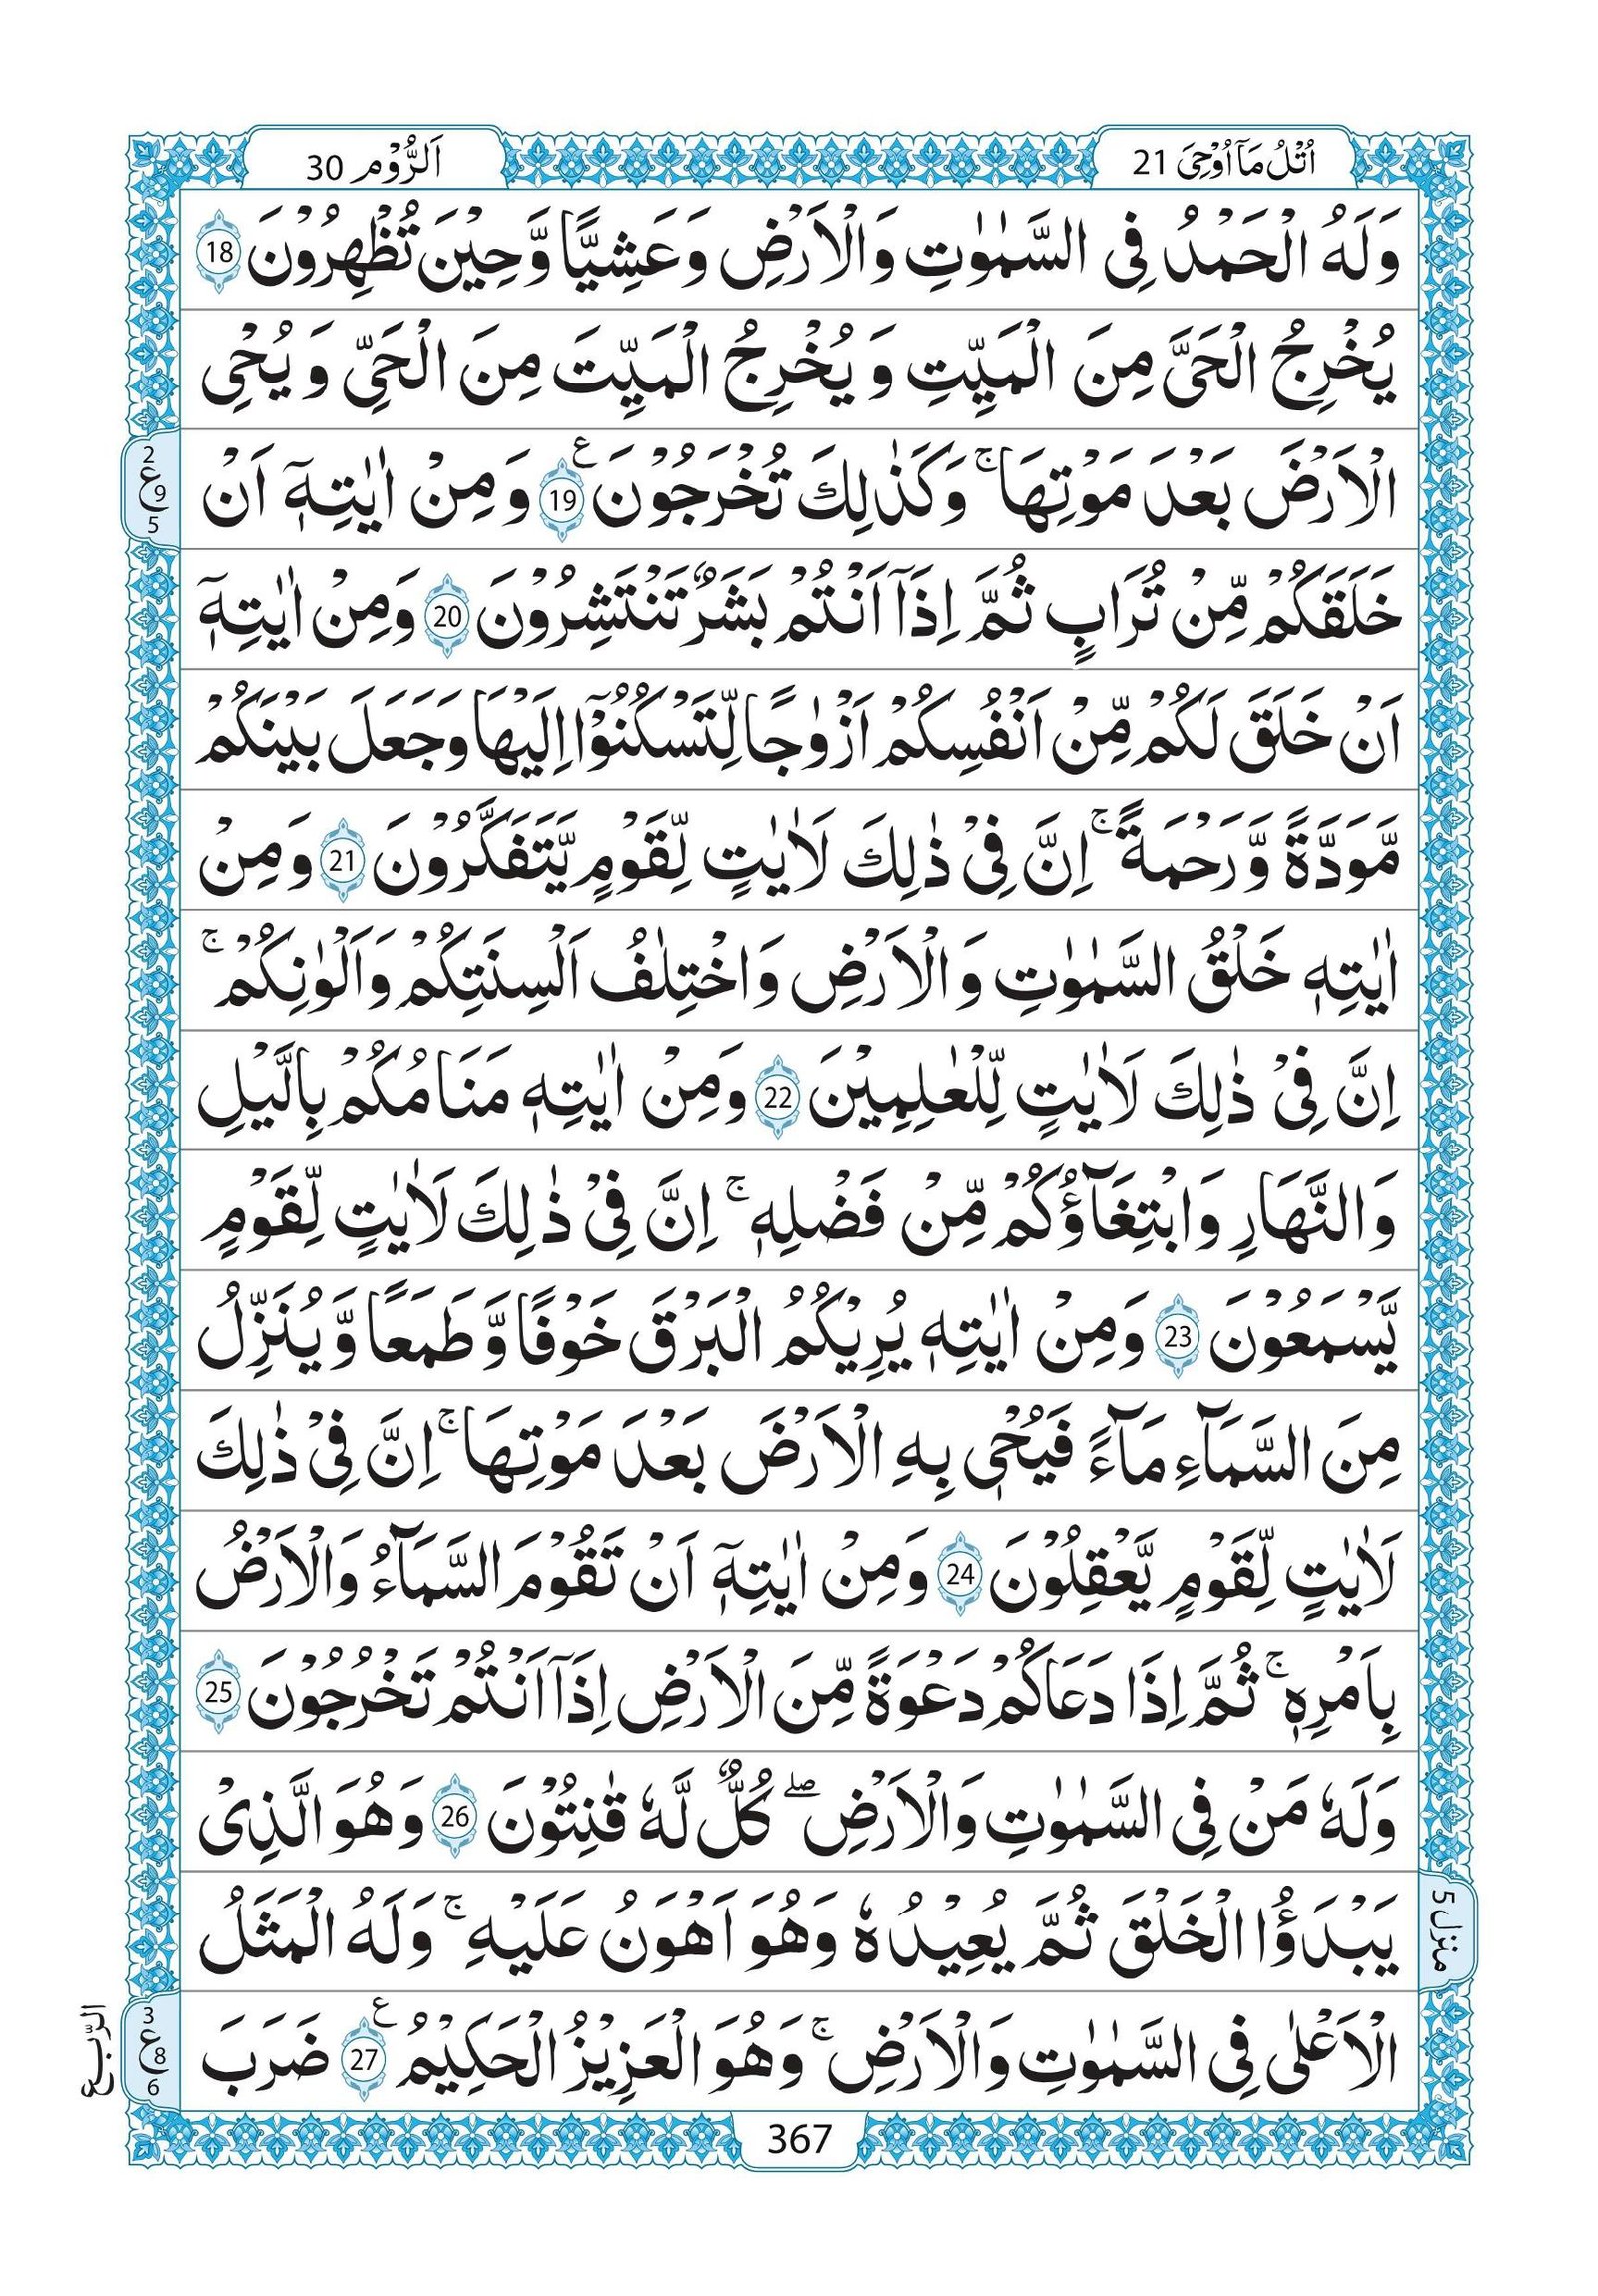 اُتْلُ مَاۤ اُوْحِیَ 21
اَلرُّوْم 30
وَلَهُ الْحَمْدُ فِی السَّمٰوٰتِ وَالْاَرْضِ وَعَشِیًّا وَّحِیْنَ تُظْهِرُوْنَ 18
یُخْرِجُ الْحَیَّ مِنَ الْمَیِّتِ وَیُخْرِجُ الْمَیِّتَ مِنَ الْحَیِّ وَیُحْیِ
الْاَرْضَ بَعْدَ مَوْتِهَا ۚ وَكَذٰلِكَ تُخْرَجُوْنَ ع 19 وَمِنْ اٰیٰتِهٖۤ اَنْ
2 ع 9 5
خَلَقَكُمْ مِّنْ تُرَابٍ ثُمَّ اِذَاۤ اَنْتُمْ بَشَرٌ تَنْتَشِرُوْنَ 20 وَمِنْ اٰیٰتِهٖۤ
اَنْ خَلَقَ لَكُمْ مِّنْ اَنْفُسِكُمْ اَزْوٰجًا لِّتَسْكُنُوْۤا اِلَیْهَا وَجَعَلَ بَیْنَكُمْ
مَّوَدَّةً وَّرَحْمَةً ۚ اِنَّ فِیْ ذٰلِكَ لَاٰیٰتٍ لِّقَوْمٍ یَّتَفَكَّرُوْنَ 21 وَمِنْ
اٰیٰتِهٖ خَلْقُ السَّمٰوٰتِ وَالْاَرْضِ وَاخْتِلٰفُ اَلْسِنَتِكُمْ وَاَلْوٰنِكُمْ ۚ
اِنَّ فِیْ ذٰلِكَ لَاٰیٰتٍ لِّلْعٰلِمِیْنَ 22 وَمِنْ اٰیٰتِهٖ مَنَامُكُمْ بِالَّیْلِ
وَالنَّهَارِ وَابْتِغَآؤُكُمْ مِّنْ فَضْلِهٖ ۚ اِنَّ فِیْ ذٰلِكَ لَاٰیٰتٍ لِّقَوْمٍ
یَّسْمَعُوْنَ 23 وَمِنْ اٰیٰتِهٖ یُرِیْكُمُ الْبَرْقَ خَوْفًا وَّطَمَعًا وَّیُنَزِّلُ
مِنَ السَّمَآءِ مَآءً فَیُحْیٖ بِهِ الْاَرْضَ بَعْدَ مَوْتِهَا ۚ اِنَّ فِیْ ذٰلِكَ
لَاٰیٰتٍ لِّقَوْمٍ یَّعْقِلُوْنَ 24 وَمِنْ اٰیٰتِهٖۤ اَنْ تَقُوْمَ السَّمَآءُ وَالْاَرْضُ
بِاَمْرِهٖ ۚ ثُمَّ اِذَا دَعَاكُمْ دَعْوَةً مِّنَ الْاَرْضِ اِذَاۤ اَنْتُمْ تَخْرُجُوْنَ 25
وَلَهٗ مَنْ فِی السَّمٰوٰتِ وَالْاَرْضِ ۖ كُلٌّ لَّهٗ قٰنِتُوْنَ 26 وَهُوَ الَّذِیْ
یَبْدَؤُا الْخَلْقَ ثُمَّ یُعِیْدُهٗ وَهُوَ اَهْوَنُ عَلَیْهِ ۚ وَلَهُ الْمَثَلُ
منزل 5
الْاَعْلٰی فِی السَّمٰوٰتِ وَالْاَرْضِ ۚ وَهُوَ الْعَزِیْزُ الْحَكِیْمُ ع 27 ضَرَبَ
3 ع 8 6
الرّبع
367